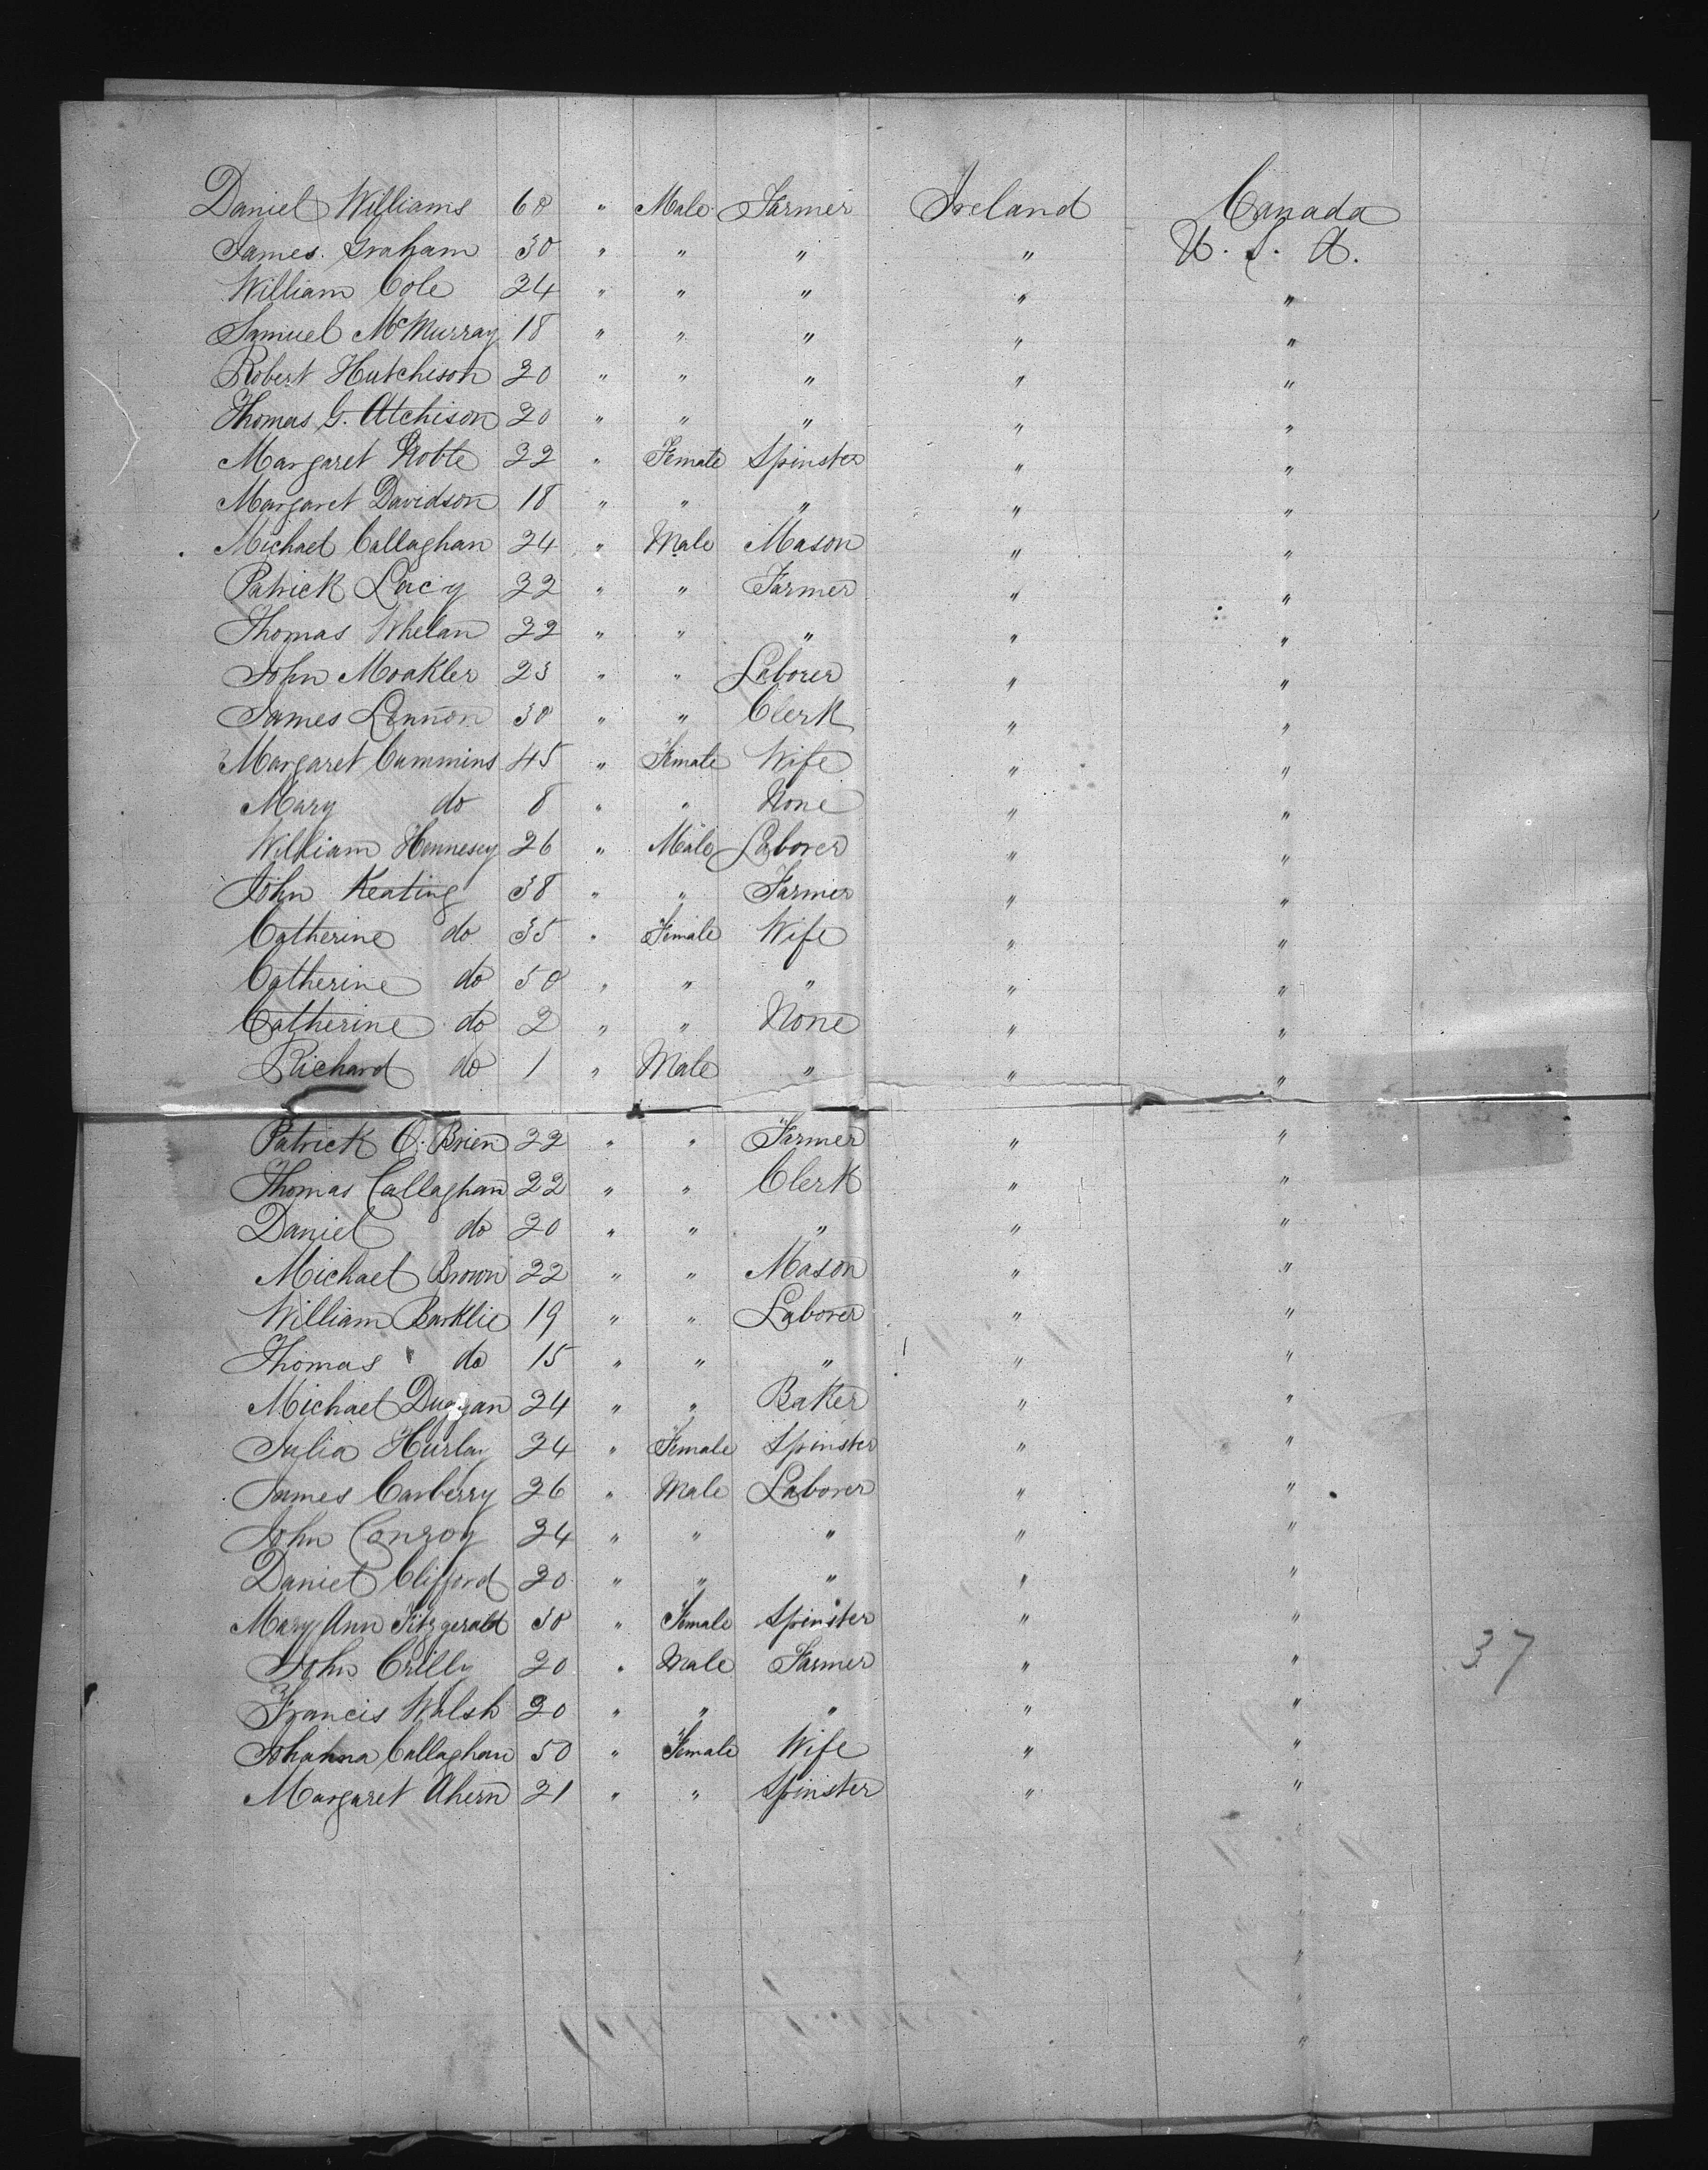 Daniel Williams 60 " Male Farmer Ireland Canada
James Graham 30 " " " " U. S. A.
William Cole 24 " " " " "
Samuel McMurray 18 " " " " "
Robert Hutcheson 20 " " " " "
Thomas G. Atchison 20 " " " " "
Margaret Noble 22 " Female Spinster " "
Margaret Davidson 18 " " " " "
Michael Callaghan 24 " Male Mason " "
Patrick Lacy 22 " " Farmer " "
Thomas Whelan 22 " " " " "
John Moakler 23 " " Laborer " "
James Lennon 30 " " Clerk " "
Margaret Cummins 45 " Female Wife " "
Mary do 8 " " None " "
William Hennesey 26 " Male Laborer " "
John Keating 38 " " Farmer " "
Catherine do 35 " Female Wife " "
Catherine do 50 " " " " "
Catherine do 2 " " None " "
Richard do 1 " Male " " "
Patrick O. Brien 22 " " Farmer " "
Thomas Callaghan 22 " " Clerk " "
Daniel do 20 " " " " "
Michael Brown 22 " " Mason " "
William Barklie 19 " " Laborer " "
Thomas do 15 " " " " "
Michael Duggan 24 " " Baker " "
Julia Hurley 24 " Female Spinster " "
James Carberry 26 " Male Laborer " "
John Conroy 24 " " " " "
Daniel Clifford 20 " " " " "
Mary Ann Fitzgerald 30 " Female Spinster " "
John Crilly 20 " Male Farmer " " 37
Francis Walsh 20 " " " " "
Johanna Callaghan 50 " Female Wife " "
Margaret Ahern 21 " " Spinster " "
"
"
"
"
"